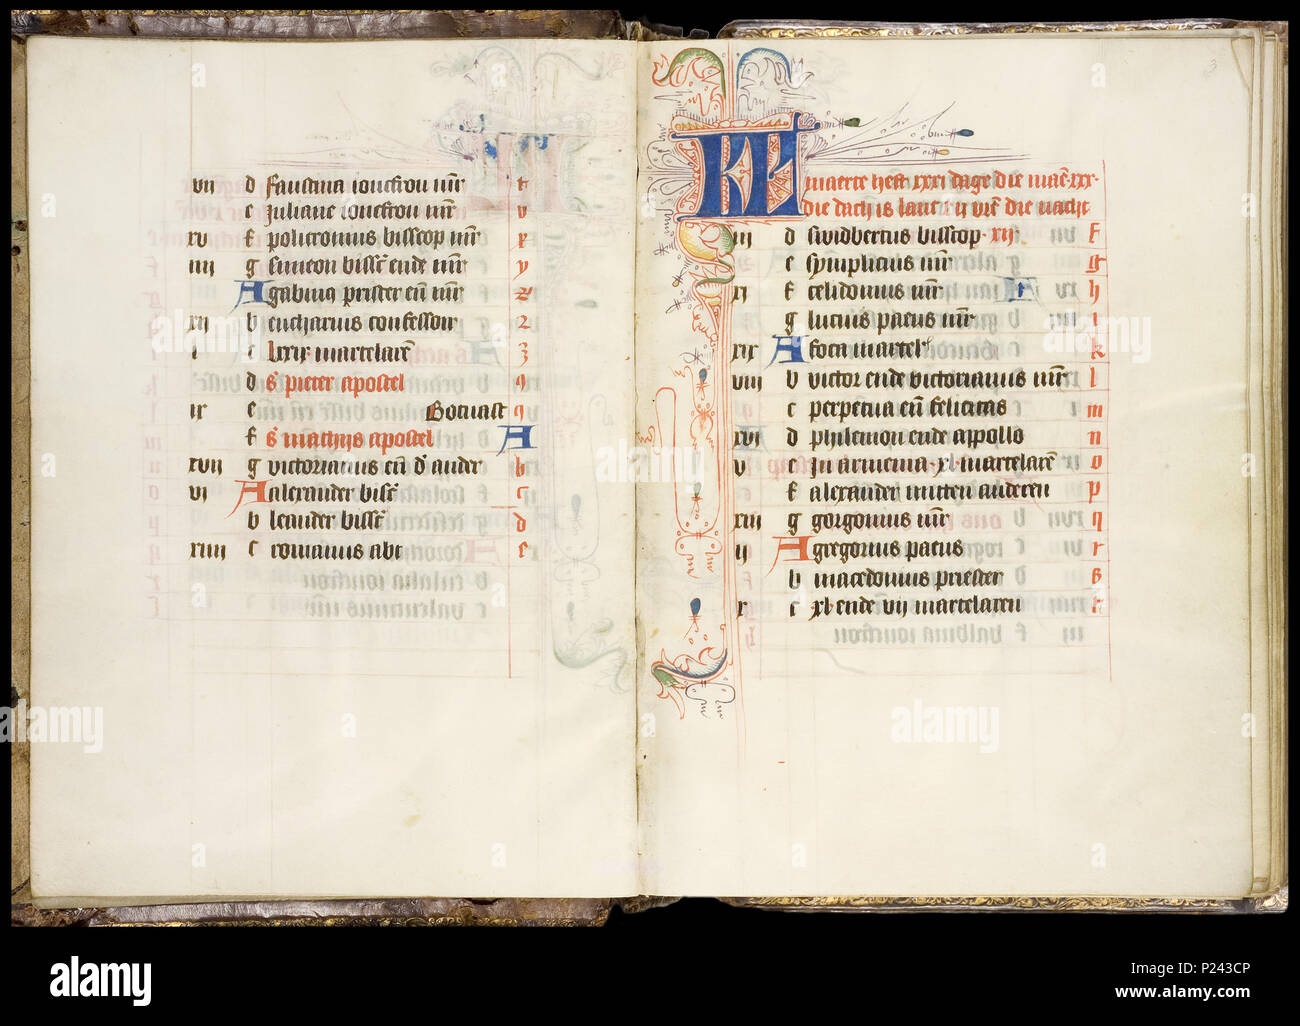 vii d Faustina ioncfrou mr̄ t
e Juliane ioncfrou mr̄ v
xv f policronius bisscop mr̄ x
iiii g Simeon bisscᵉ ende mr̄ y
A gabinꝯ prister en̄ mr̄ z
xii b eucharius confessoir 2
i c lxxix martelarē 3
d s. pieter apostel 9
ix e Gotuast 9
f s. mathijs apostel A
xvii g victorianus en̄ d' ander b
vi A alexander bisscᵉ c
b leander bisscᵉ d
xiiii c romanus abt e
3
KL maerte heft xxxi dage die maē xxx·
die dach is lanc xij vrē die nacht
iii d Swidbertus bisscop · xij f
e symplicius mr̄ g
xi f celidonius mr̄ h
g lucius paeus mr̄ i
xix A foca martelʳ k
viii b victor ende victorianus mr̄ l
c perpetua en̄ felicitas m
xvi d philemon ende appollo n
v e In armenia · xl · martelarē o
f alexander mitten anderen p
xiii g gorgonius mr̄ q
ii A gregorius paeus r
b macedonius priester s
x c xl · ende vij martelaren t
alamy
alamy
Image ID: P243CP
www.alamy.com